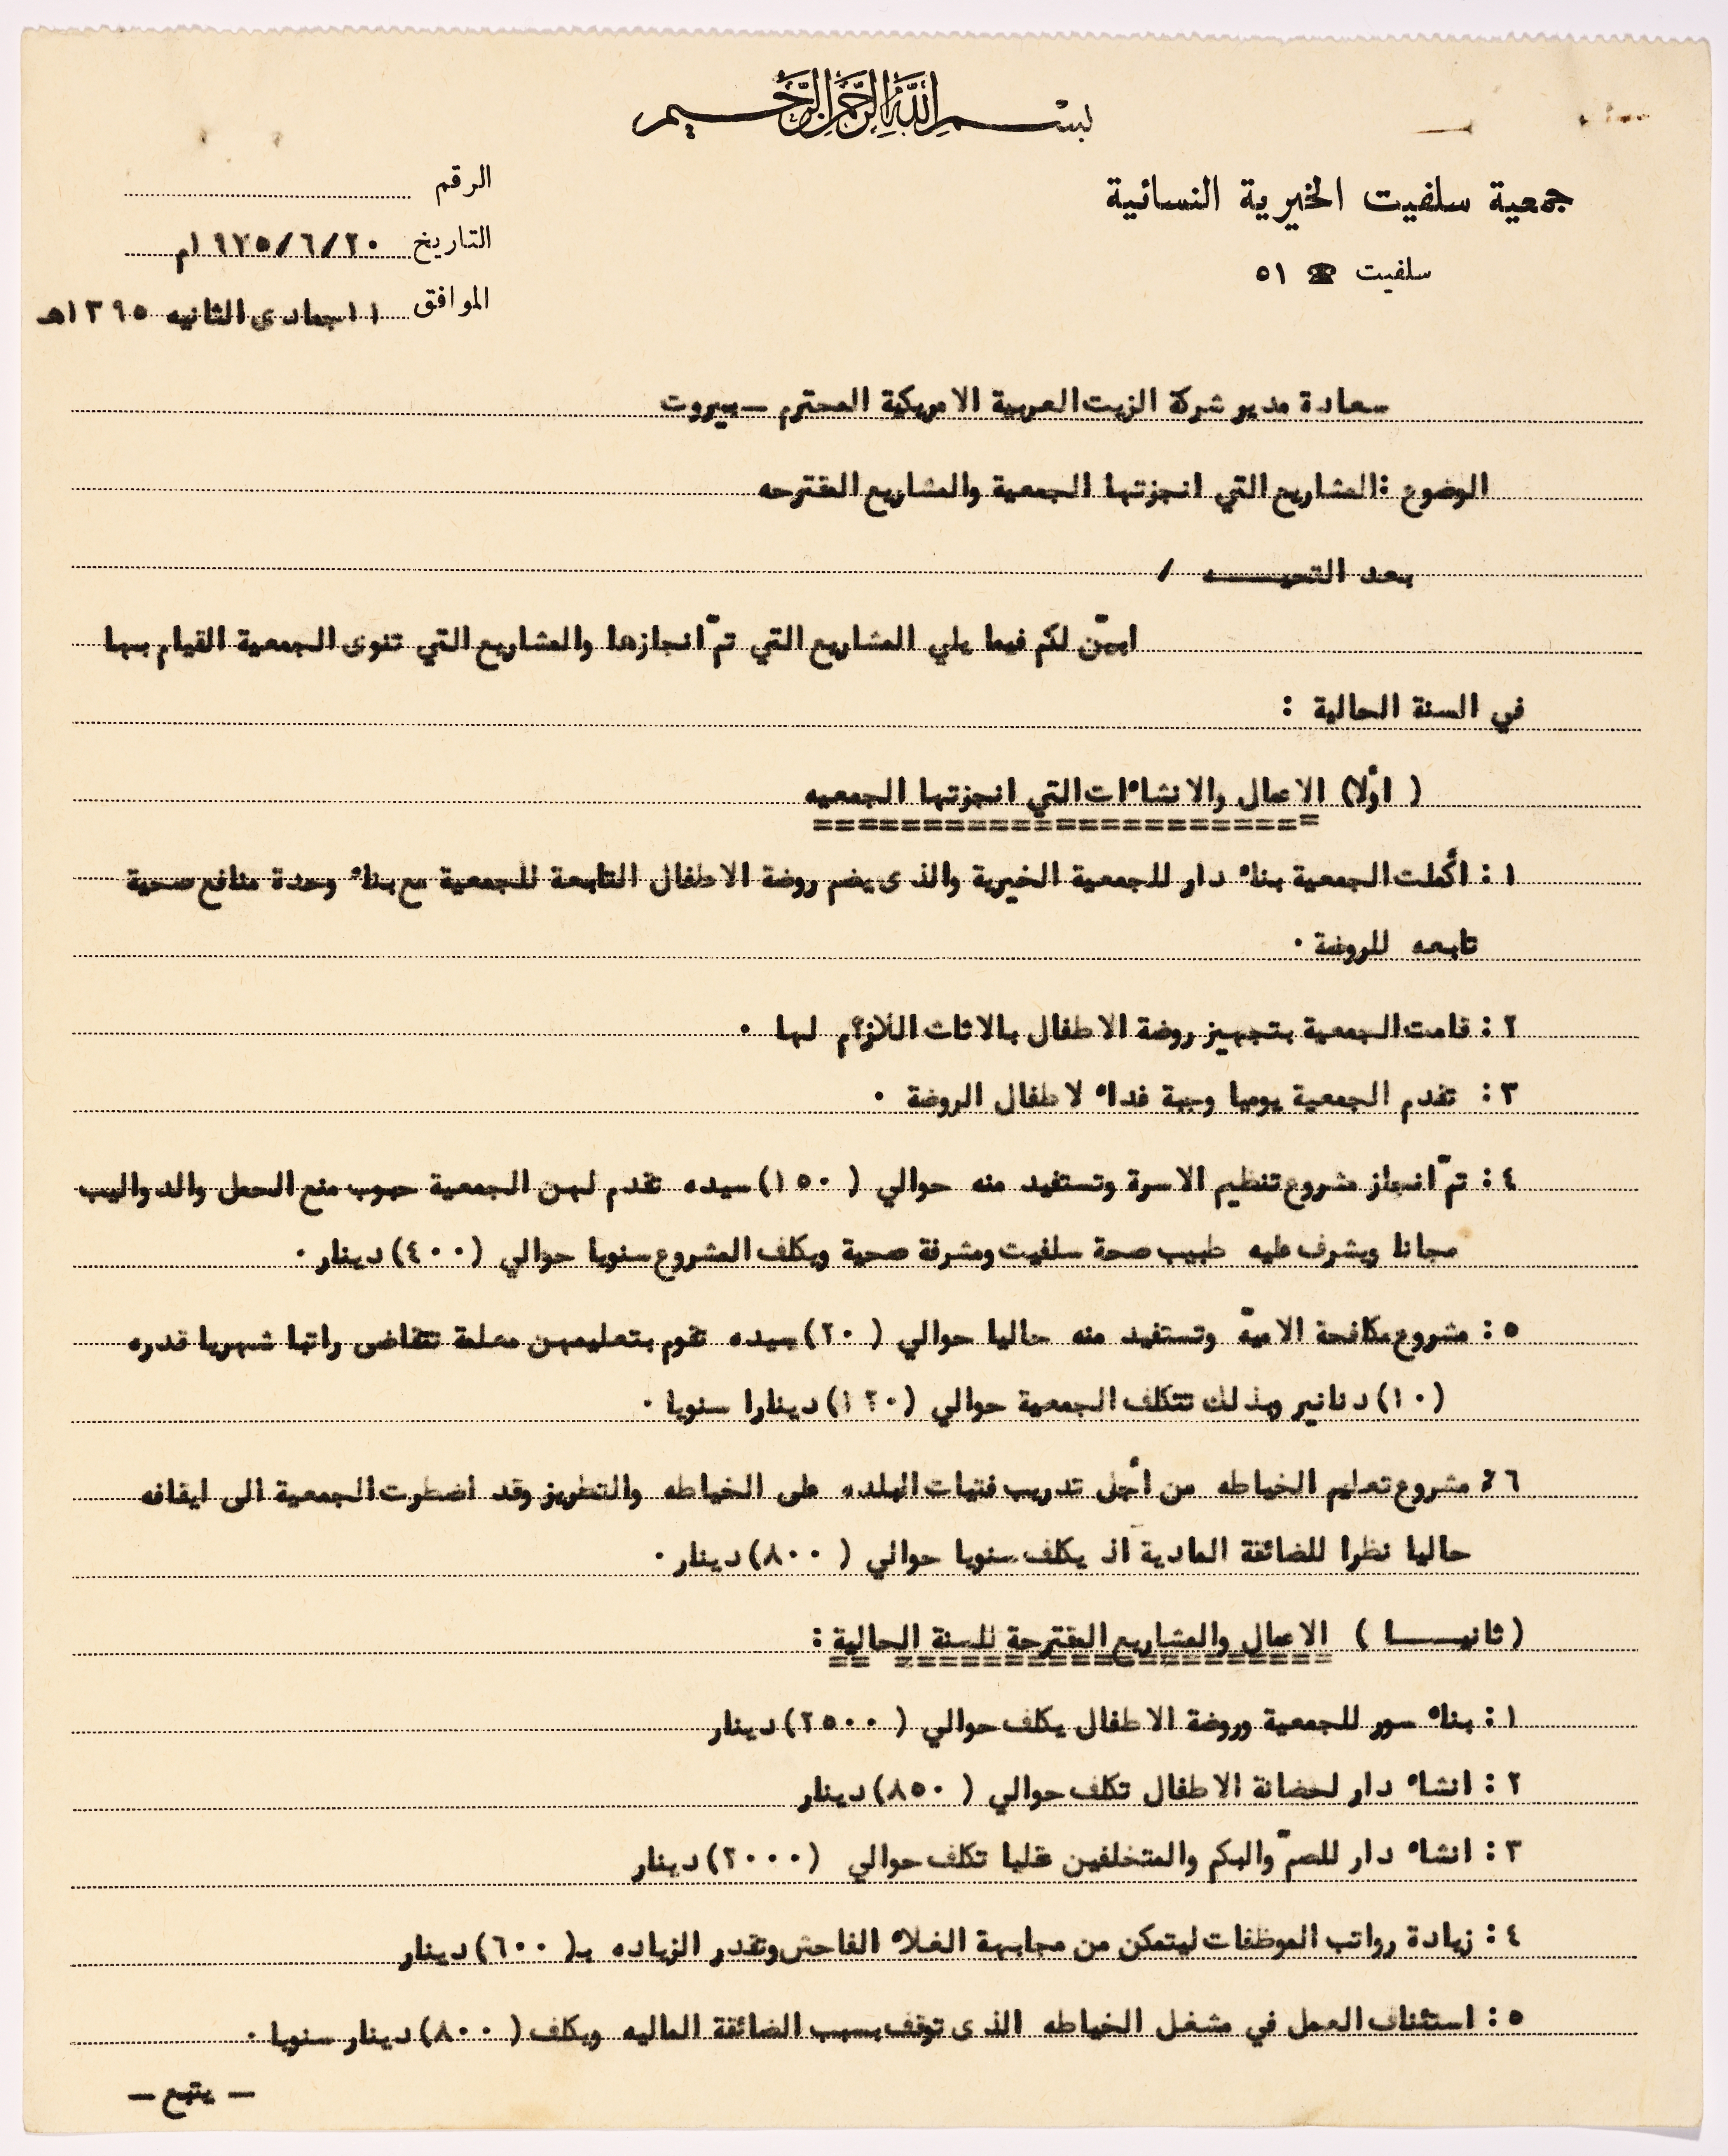 بسم الله الرحمن الرحيم
جمعية سلفيت الخيرية النسائية
سلفيت ☎ ٥١
الرقم
التاريخ ٢٠/٦/١٩٧٥م
الموافق ١١جمادى الثانيه ١٣٩٥هـ
سعادة مدير شركة الزيت العربية الامريكية المحترم – بيروت
الوضوع :المشاريع التي انجزتها الجمعية والمشاريع المقترحه
بعد التحيـــــه /
ابيّن لكم فيما يلي المشاريع التي تمّ انجازها والمشاريع التي تنوى الجمعية القيام بها
في السنة الحالية :
( اولاً) الاعمال والانشاءات التي انجزتها الجمعيه
======================
١ : أكملت الجمعية بناء دار للجمعية الخيرية والذى يضم روضة الاطفال التابعة للجمعية مع بناء وحدة منافع صحية
تابعه للروضة .
٢ : قامت الجمعية بتجهيز روضة الاطفال بالاثاث اللازم لها .
٣ : تقدم الجمعية يوميا وجبة غداء لاطفال الروضة .
٤ : تمّ انجاز مشروع تنظيم الاسرة وتستفيد منه حوالي ( ١٥٠)سيده تقدم لهن الجمعية حبوب منع الحمل والدواليب
مجانا ويشرف عليه طبيب صحة سلفيت ومشرفة صحية ويكلف المشروع سنويا حوالي (٤٠٠)دينار.
٥ : مشروع مكافحة الاميّة وتستفيد منه حاليا حوالي ( ٢٠)سيده تقوم بتعليمهن معلمة تتقاضى راتبا شهريا قدره
(١٠)دنانير وبذلك تتكلف الجمعية حوالي (١٢٠)دينارا سنويا .
٦ : مشروع تعليم الخياطه من أجل تدريب فتيات البلده على الخياطه والتطريز وقد اضطرت الجمعية الى ايقافه
حاليا نظرا للضائقة المادية اذ يكلف سنويا حوالي ( ٨٠٠)دينار.
(ثانيـــــا ) الاعمال والمشاريع المقترحة للسنة الحالية :
======================
١ : بناء سور للجمعية وروضة الاطفال يكلف حوالي ( ٢٥٠٠)دينار
٢ : انشاء دار لحضانة الاطفال تكلف حوالي ( ٨٥٠)دينار
٣ : انشاء دار للصمّ والبكم والمتخلفين عقليا تكلف حوالي (٢٠٠٠)دينار
٤ : زيادة رواتب الموظفات ليتمكن من مجابهة الغلاء الفاحش وتقدر الزياده بـ( ٦٠٠)دينار
٥ : استئناف العمل في مشغل الخياطه الذى توقف بسبب الضائقة الماليه ويكلف ( ٨٠٠)دينار سنويا .
– يتبع –